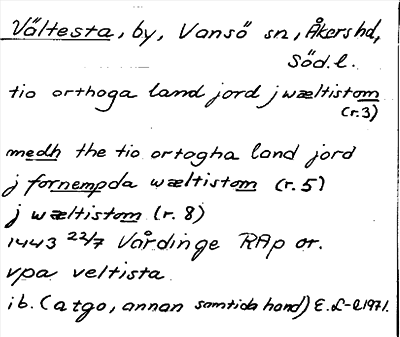 Vältesta, by, Vansö sn, Åkers hd,
Söd. l.
tio orthoga land jord j wæltistom
(r.3)
medh the tio ortogha land jord
j fornempda wæltistom (r. 5)
j wæltistom (r. 8)
1443 22/7 Vårdinge RAp or.
vpa veltista
ib. (atgo, annan samtida hand) E. L-e 1971.